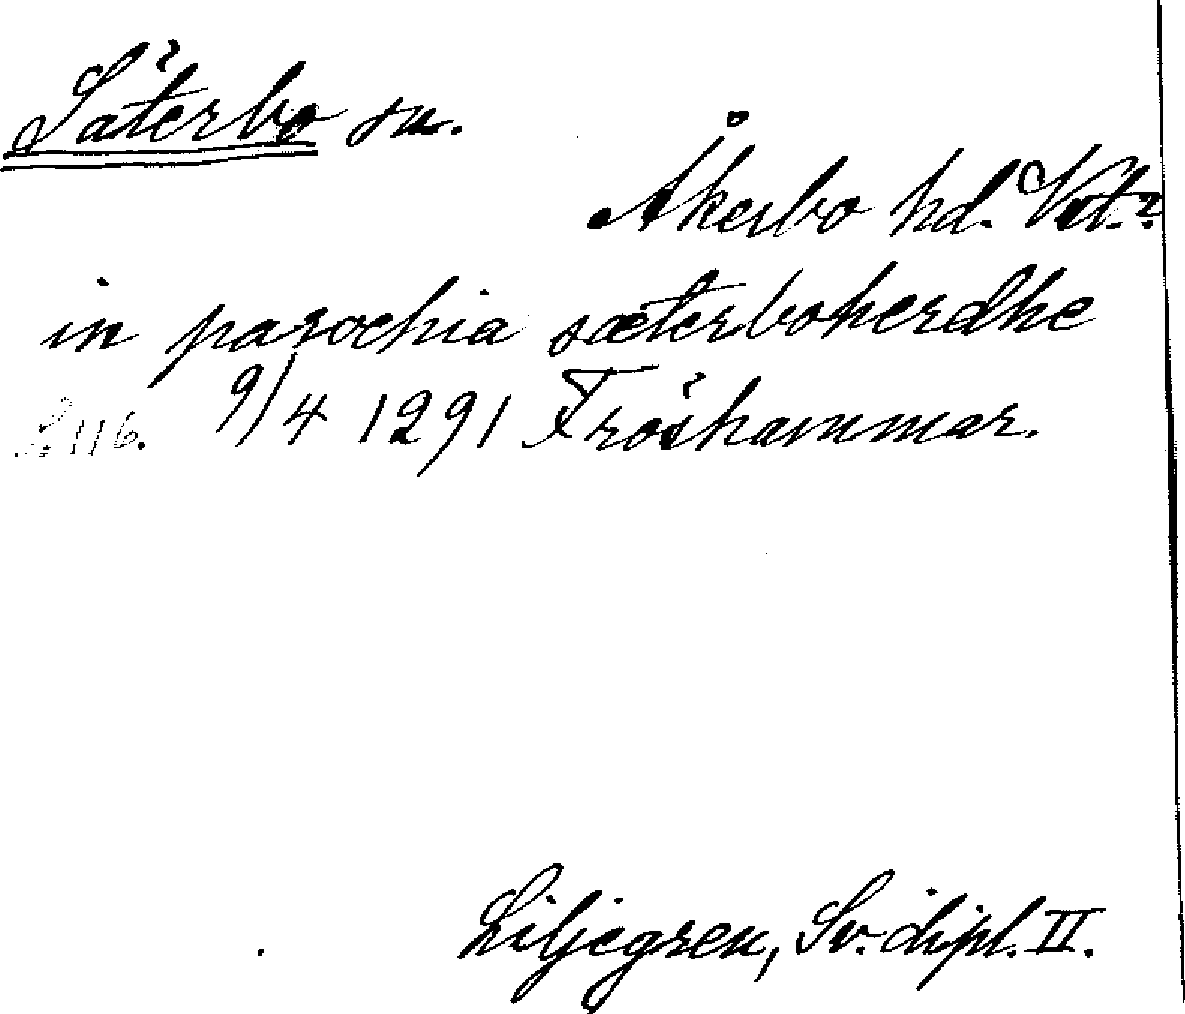 Säterbo sn.
Åkerbo hd. Vstm.
in parochia sæterboherdhe
S. 116. 9/4 1291 Fröshammar.
Liljegren, Sv. dipl. II.